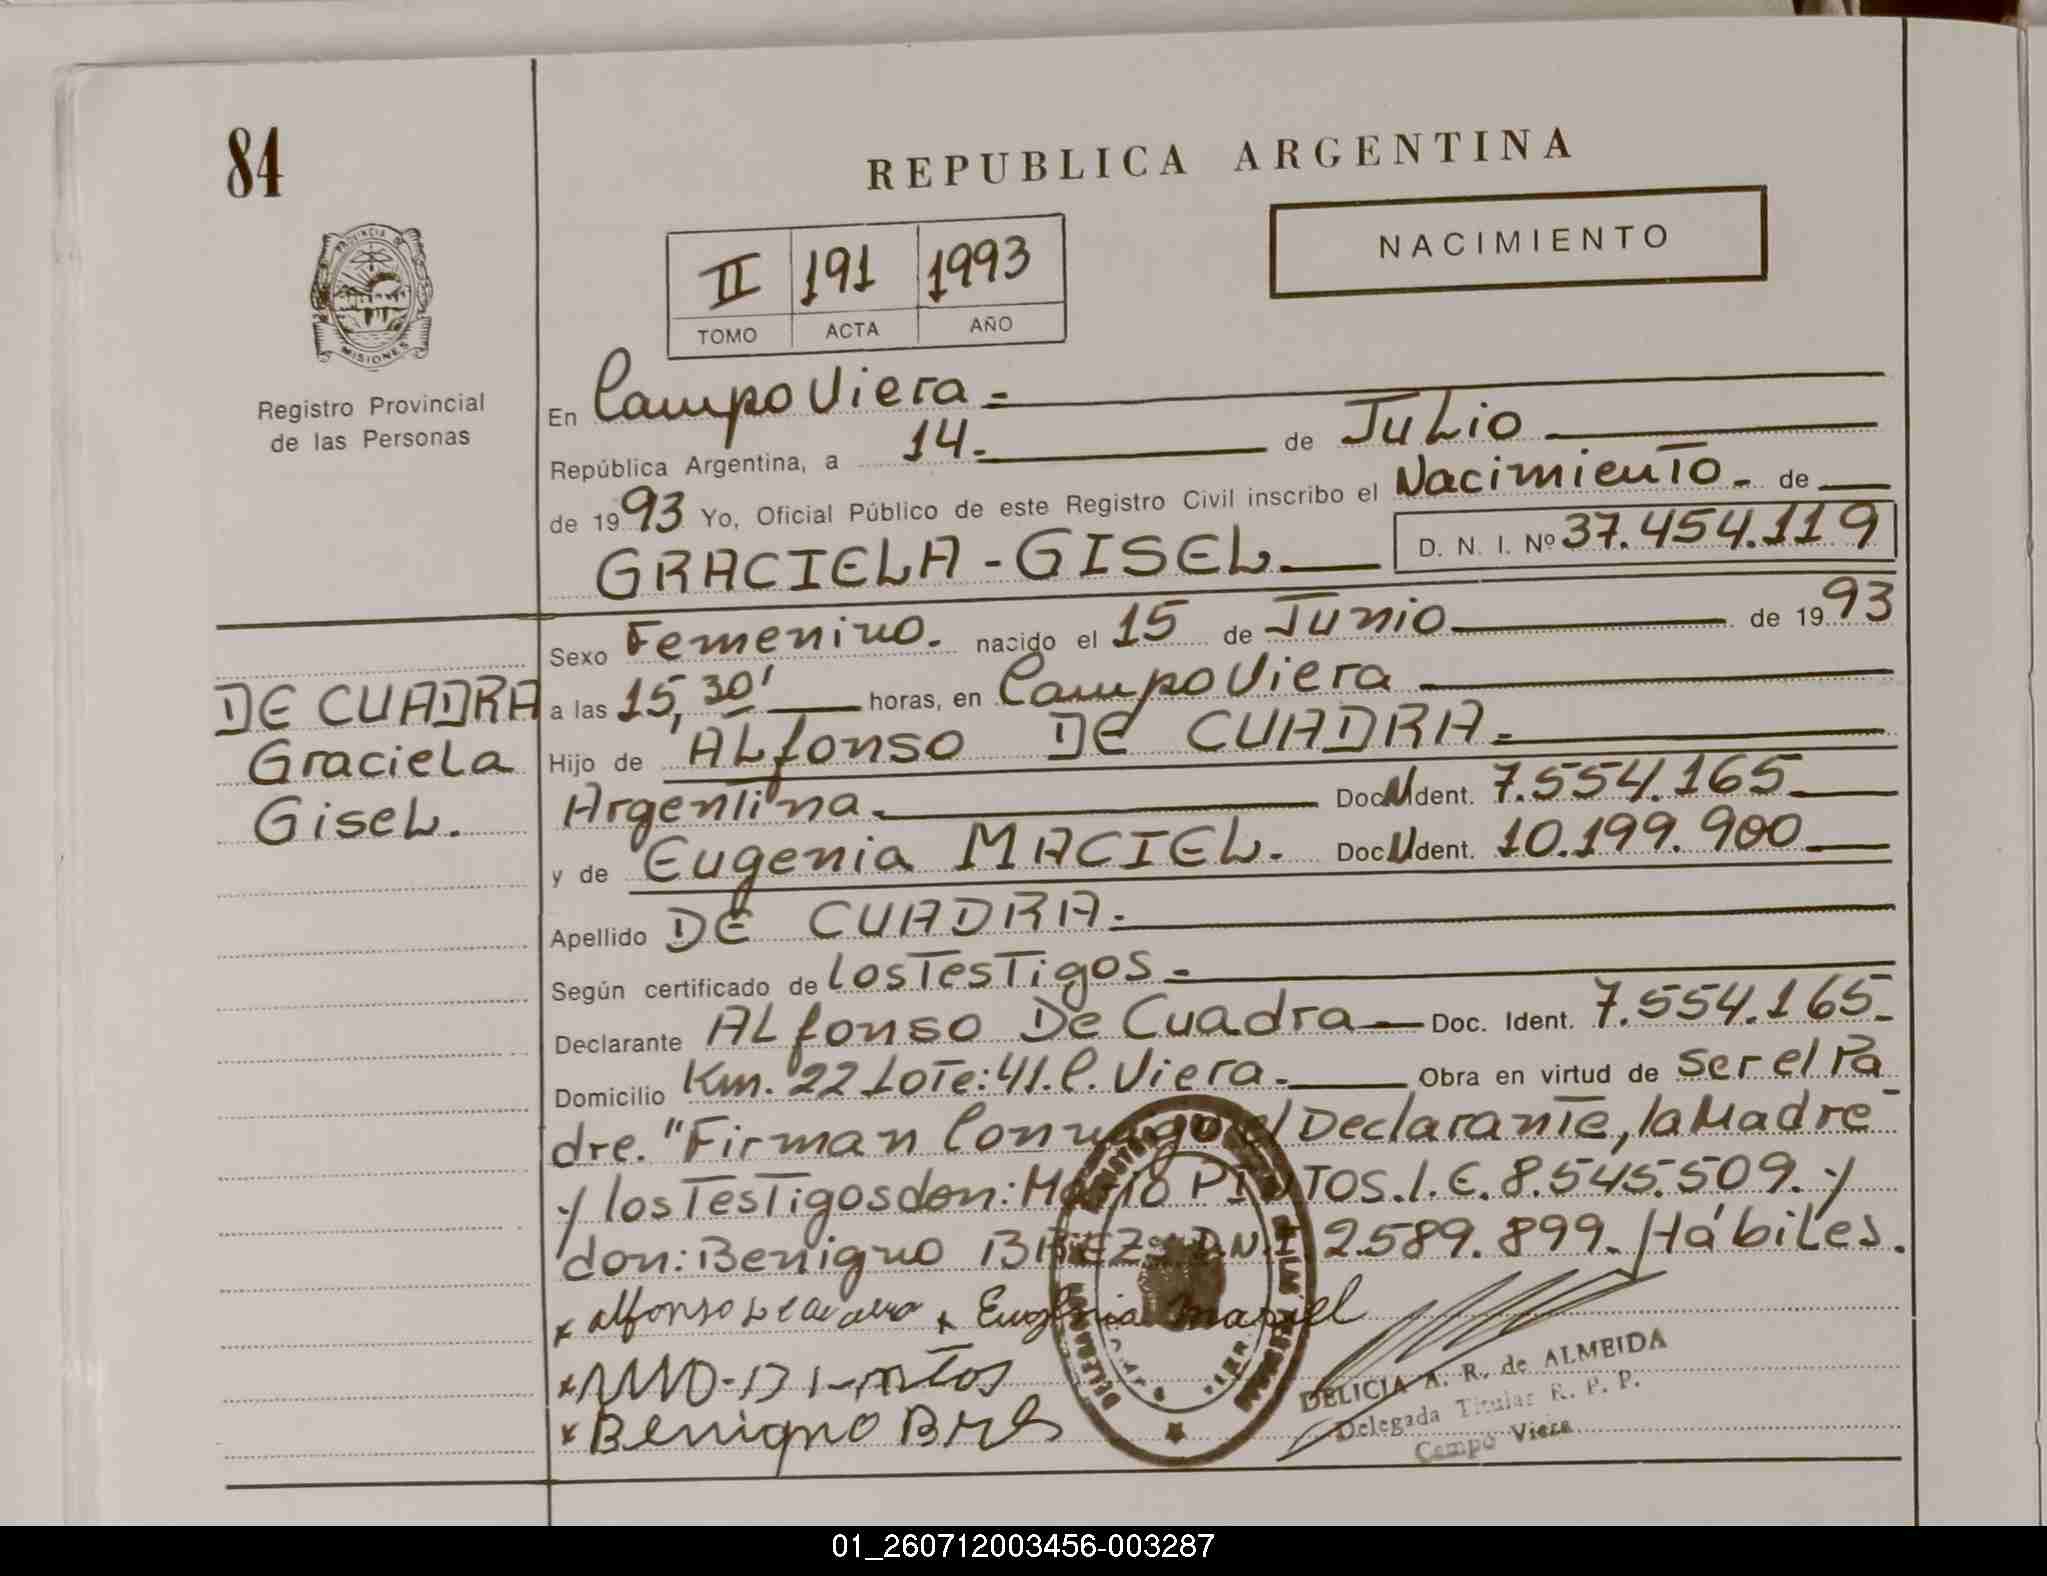 84
REPUBLICA ARGENTINA
NACIMIENTO
PROVINCIA DE
MISIONES
Registro Provincial
de las Personas
II 191 1993
TOMO ACTA AÑO
En Campo Viera =
República Argentina, a 14 = de Julio
de 1993 Yo, Oficial Público de este Registro Civil inscribo el Nacimiento - de
GRACIELA - GISEL D. N. I. Nº 37.454.119
Sexo Femenino. nacido el 15 de Junio de 1993
a las 15,30' horas, en Campo Viera
Hijo de ALfonso DE CUADRA =
Argentina. Doc. Ident. 7.554.165
y de Eugenia MACIEL. Doc. Ident. 10.199.900
Apellido DE CUADRA =
Según certificado de los Testigos =
Declarante ALfonso De Cuadra Doc. Ident. 7.554.165
Domicilio Km. 22 Lote: 41. C. Viera. Obra en virtud de ser el Pa
dre. "Firman Conmigo el Declarante, la Madre
y los Testigos don: Mario PINTOS. L. E. 8.545.509. y
don: Benigno D.N.I. 2.589.899. Hábiles.
DE CUADRA
Graciela
Gisel.
x alfonso x Eugenia Maciel
x
x Benigno
DELICIA A. R. de ALMEIDA
Delegada Titular R. P. P.
Campo Viera
01_260712003456-003287